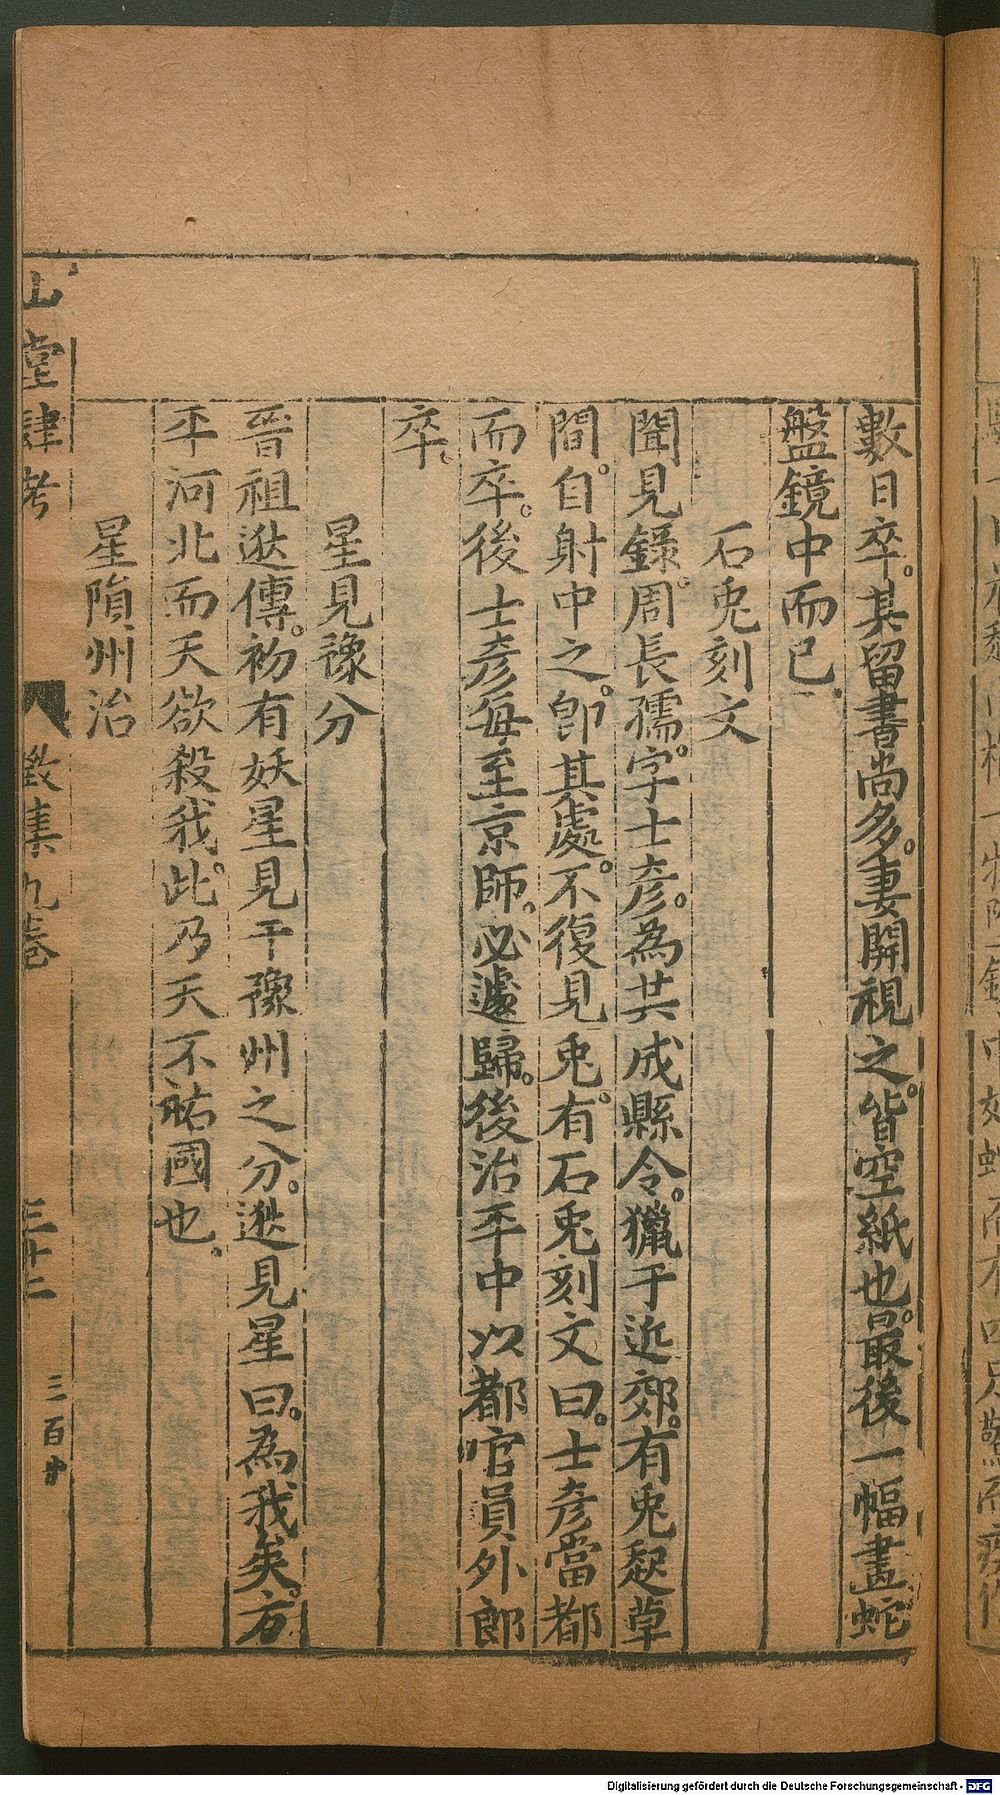 數日卒。其留書尚多。妻開視之。皆空紙也。最後一幅畫蛇
盤鏡中而已。
石兎刻文
聞見錄。周長孺。字士彥。為共成縣令。獵于近郊。有兎起草
間。自射中之。卽其處。不復見兎。有石兎刻文曰。士彥當都
而卒。後士彥每至京師。必遽歸。後治平中以都官員外郎
卒。
星見豫分
晉祖逖傳。初有妖星見于豫州之分。逖見星曰。為我矣。方
平河北而天欲殺我。此乃天不祐國也。
星隕州治
山堂肆考
徵集九卷
三十二
三百廿
Digitalisierung gefördert durch die Deutsche Forschungsgemeinschaft - DFG